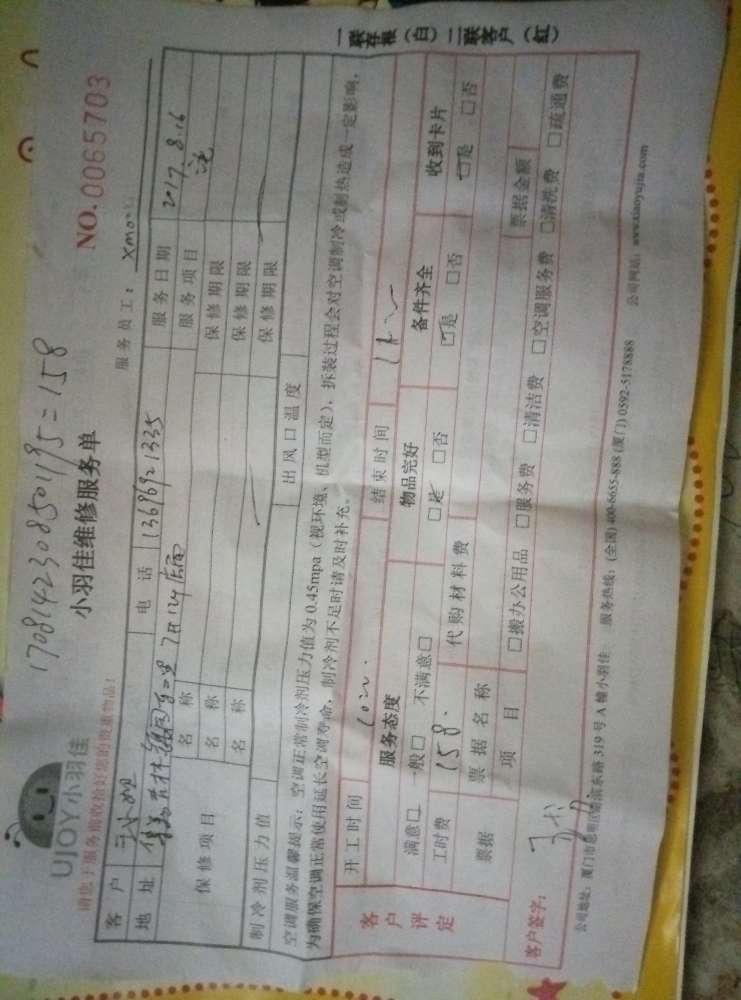 170814230850195=158
UJOY小羽佳
小羽佳维修服务单
NO.0065703
请您于服务前收拾好您的贵重物品!
服务员工:
客户
电话 13696921335
服务日期 2017.8.16
地址
服务项目
保修项目
名称
保修期限
名称
保修期限
名称
保修期限
制冷剂压力值
出风口温度
空调服务温馨提示:空调正常制冷剂压力值为0.45mpa(视环境、机型而定),拆装过程会对空调制冷或制热造成一定影响,
为确保空调正常使用延长空调寿命,制冷剂不足时请及时补充。
客户评定
开工时间
结束时间
服务态度
物品完好
备件齐全
收到卡片
满意□ 一般□ 不满意□
□是 □否
□是 □否
□是 □否
工时费 158.
代购材料费
票据
票据名称
票据金额
项目
□搬办公用品 □服务费 □清洁费 □空调服务费 □清洗费 □疏通费
客户签字:
公司地址:厦门市思明区湖滨东路319号A幢小羽佳 服务热线:(全国)400-6655-888(厦门)0592-5178888 公司网站:www.xiaoyujia.com
一联存根(白)二联客户(红)